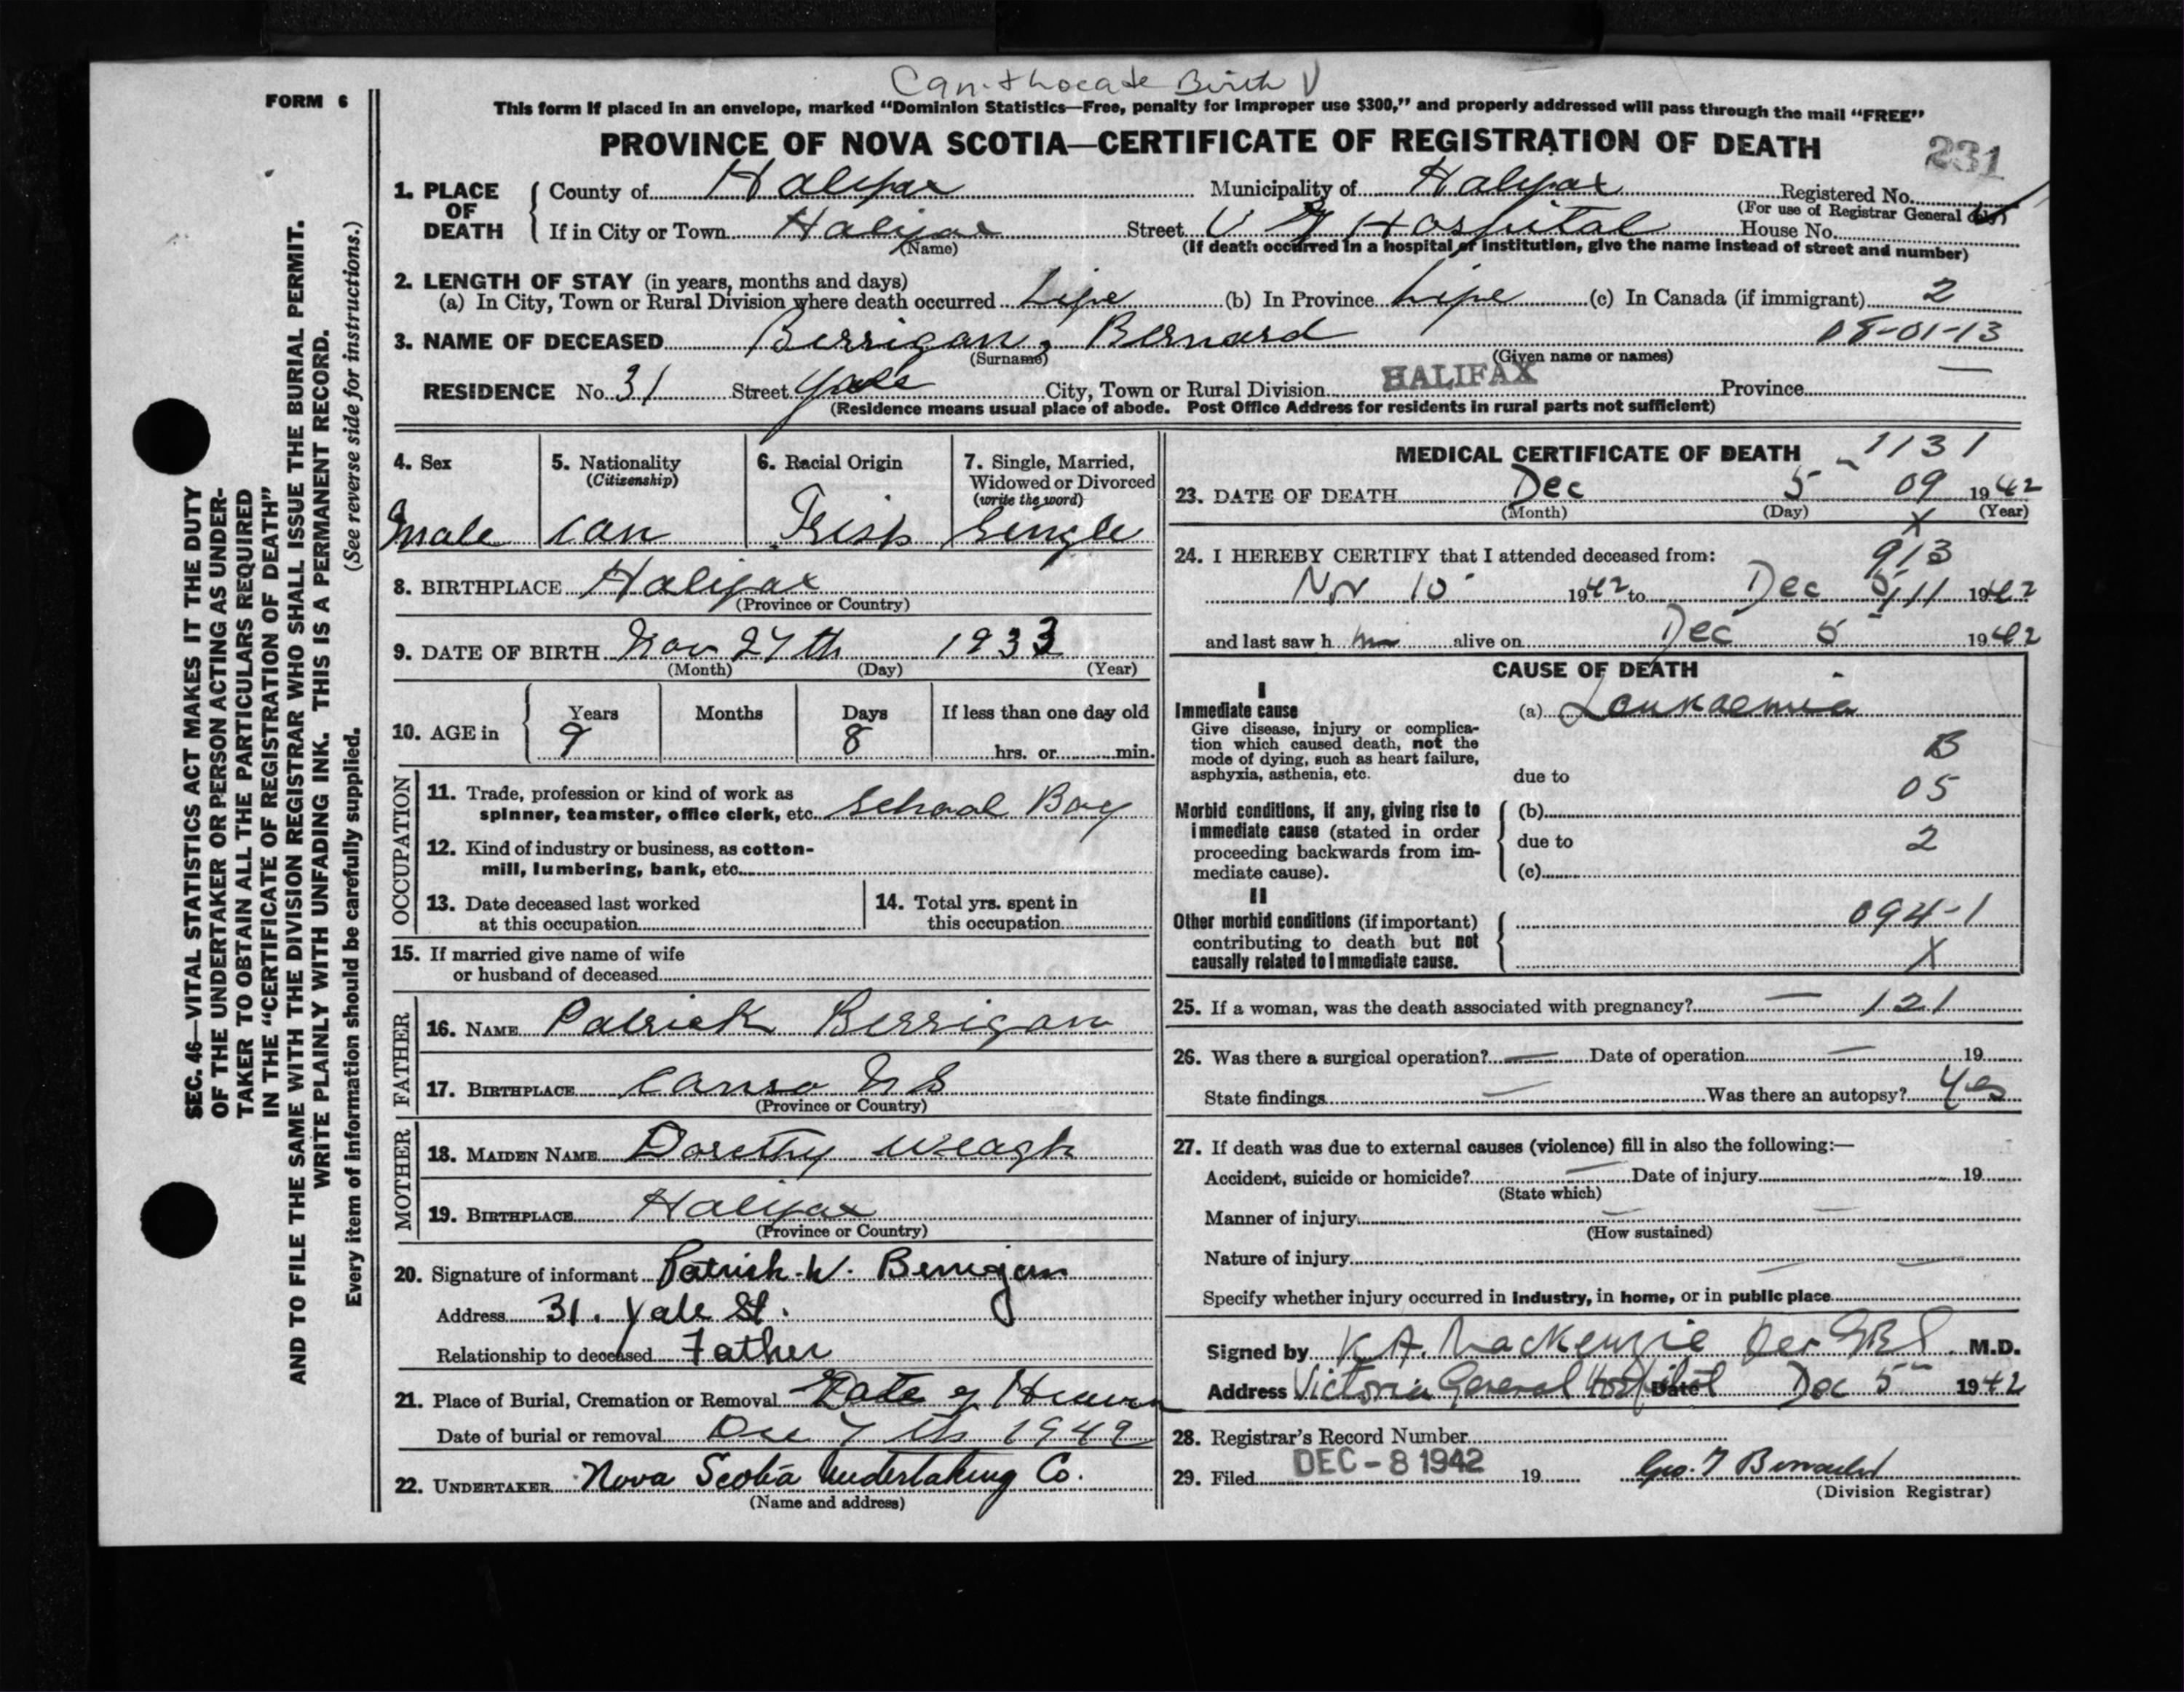 Can't locate Birth V
FORM 6
This form if placed in an envelope, marked "Dominion Statistics—Free, penalty for improper use $300," and properly addressed will pass through the mail "FREE"
PROVINCE OF NOVA SCOTIA—CERTIFICATE OF REGISTRATION OF DEATH
231
1. PLACE OF DEATH
County of Halifax Municipality of Halifax Registered No.
(For use of Registrar General only)
If in City or Town Halifax Street V G Hospital House No.
(Name) (If death occurred in a hospital or institution, give the name instead of street and number)
2. LENGTH OF STAY (in years, months and days)
(a) In City, Town or Rural Division where death occurred Life (b) In Province Life (c) In Canada (if immigrant) 2
3. NAME OF DECEASED Berrigan, Bernard 08-01-13
(Surname) (Given name or names)
RESIDENCE No. 31 Street Yale City, Town or Rural Division HALIFAX Province
(Residence means usual place of abode. Post Office Address for residents in rural parts not sufficient)
4. Sex
Male
5. Nationality
(Citizenship)
Can
6. Racial Origin
Irish
7. Single, Married,
Widowed or Divorced
(write the word)
Single
8. BIRTHPLACE Halifax
(Province or Country)
9. DATE OF BIRTH Nov 27th 1933
(Month) (Day) (Year)
10. AGE in
Years Months Days If less than one day old
9 8 hrs. or min.
OCCUPATION
11. Trade, profession or kind of work as
spinner, teamster, office clerk, etc. School Boy
12. Kind of industry or business, as cotton-
mill, lumbering, bank, etc.
13. Date deceased last worked
at this occupation
14. Total yrs. spent in
this occupation
15. If married give name of wife
or husband of deceased
FATHER
16. NAME Patrick Berrigan
17. BIRTHPLACE Canso N S
(Province or Country)
MOTHER
18. MAIDEN NAME Dorothy Weagh
19. BIRTHPLACE Halifax
(Province or Country)
20. Signature of informant Patrick W. Berrigan
Address 31. Yale St.
Relationship to deceased Father
21. Place of Burial, Cremation or Removal Gate of Heaven
Date of burial or removal Dec 7th 1942
22. UNDERTAKER Nova Scotia Undertaking Co.
(Name and address)
MEDICAL CERTIFICATE OF DEATH 1131
23. DATE OF DEATH Dec 5 09 1942
(Month) (Day) (Year)
X
24. I HEREBY CERTIFY that I attended deceased from: 913
Nov 10 1942 to Dec 5 111 1942
and last saw h im alive on Dec 5 1942
CAUSE OF DEATH
I
Immediate cause
Give disease, injury or complica-
tion which caused death, not the
mode of dying, such as heart failure,
asphyxia, asthenia, etc.
(a) Leukaemia
B
due to
05
Morbid conditions, if any, giving rise to
immediate cause (stated in order
proceeding backwards from im-
mediate cause).
(b)
due to 2
(c)
II
Other morbid conditions (if important)
contributing to death but not
causally related to immediate cause.
094-1
X
25. If a woman, was the death associated with pregnancy? — 121
26. Was there a surgical operation? — Date of operation — 19
State findings — Was there an autopsy? Yes
27. If death was due to external causes (violence) fill in also the following:—
Accident, suicide or homicide? — Date of injury 19
(State which)
Manner of injury
(How sustained)
Nature of injury
Specify whether injury occurred in industry, in home, or in public place
Signed by K A. MacKenzie per M.D.
Address Victoria General Hospital Date Dec 5 1942
28. Registrar's Record Number
29. Filed DEC - 8 1942 19
(Division Registrar)
SEC. 46—VITAL STATISTICS ACT MAKES IT THE DUTY
OF THE UNDERTAKER OR PERSON ACTING AS UNDER-
TAKER TO OBTAIN ALL THE PARTICULARS REQUIRED
IN THE "CERTIFICATE OF REGISTRATION OF DEATH"
AND TO FILE THE SAME WITH THE DIVISION REGISTRAR WHO SHALL ISSUE THE BURIAL PERMIT.
WRITE PLAINLY WITH UNFADING INK. THIS IS A PERMANENT RECORD.
Every item of information should be carefully supplied. (See reverse side for instructions.)